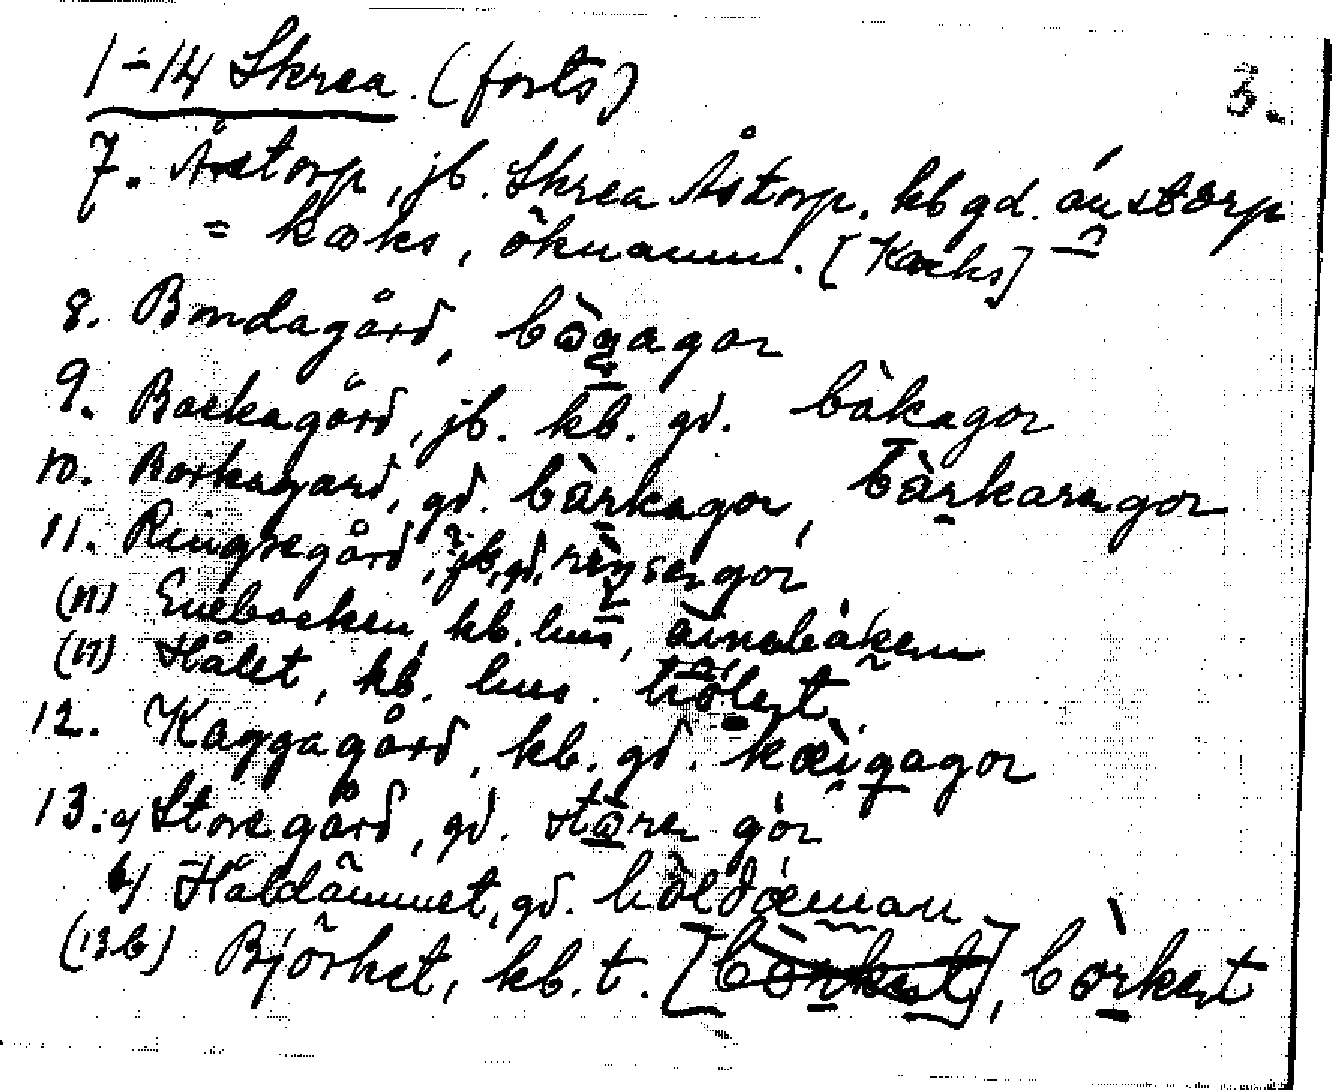 1-14 Skrea. (forts) 3.
7. Åstorp, jb. Skrea Åstorp. kb gd. áustorp
= kæks, öknamn. [Kæcks]
8. Bondagård, bònagor
9. Backagård, jb. kb. gd. bàkagor
10. Barkagard, gd. bàrkagor, bàrkarengor
11. Ringsegård, jb, gd,
(11) Enebacken, kb. hus,
(11) Hålet, kb. hus. hòlet.
12. Kaggagård, kb. gd. kæ̀igagor
13. a) Storegård, gd. stòre gòr
b) Håldämmet, gd. hòldæman
(13b) Björket, kb. t. [bòrket], bòrket